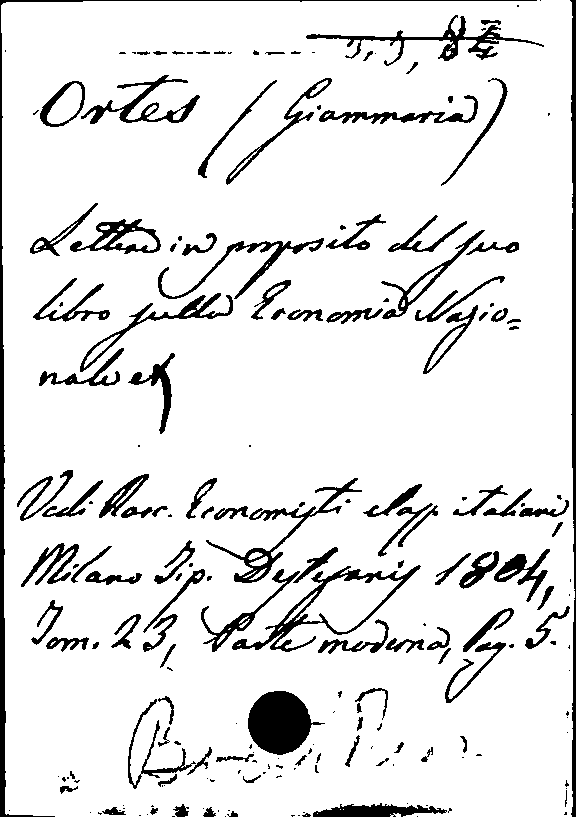 Ortes (Giammaria)
Lettere in proposito del suo
libro sulla Economia Nazio=
nale
Vedi Racc. Economisti class. italiani,
Milano Tip. Destefanis 1804,
Tom. 23, Parte moderna, Pag. 5.